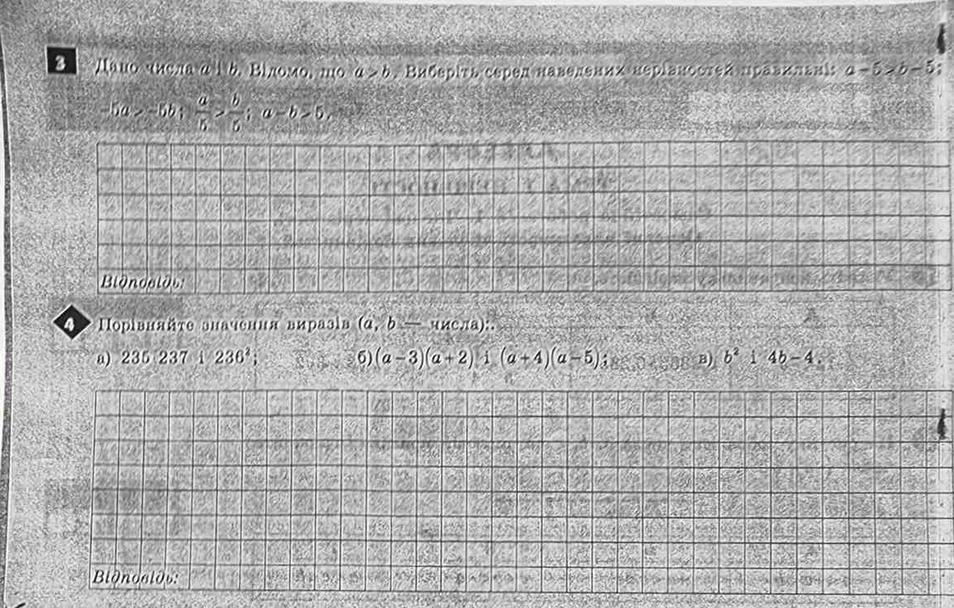 3 Дано числа a і b. Відомо, що a > b. Виберіть серед наведених нерівностей правильні: a − 5 > b − 5;
−5a > −5b; a/5 > b/5; a − b > 5.
Відповідь:
4 Порівняйте значення виразів (a, b — числа):.
а) 235·237 і 236²; б) (a−3)(a+2) і (a+4)(a−5); в) b² і 4b−4.
Відповідь: